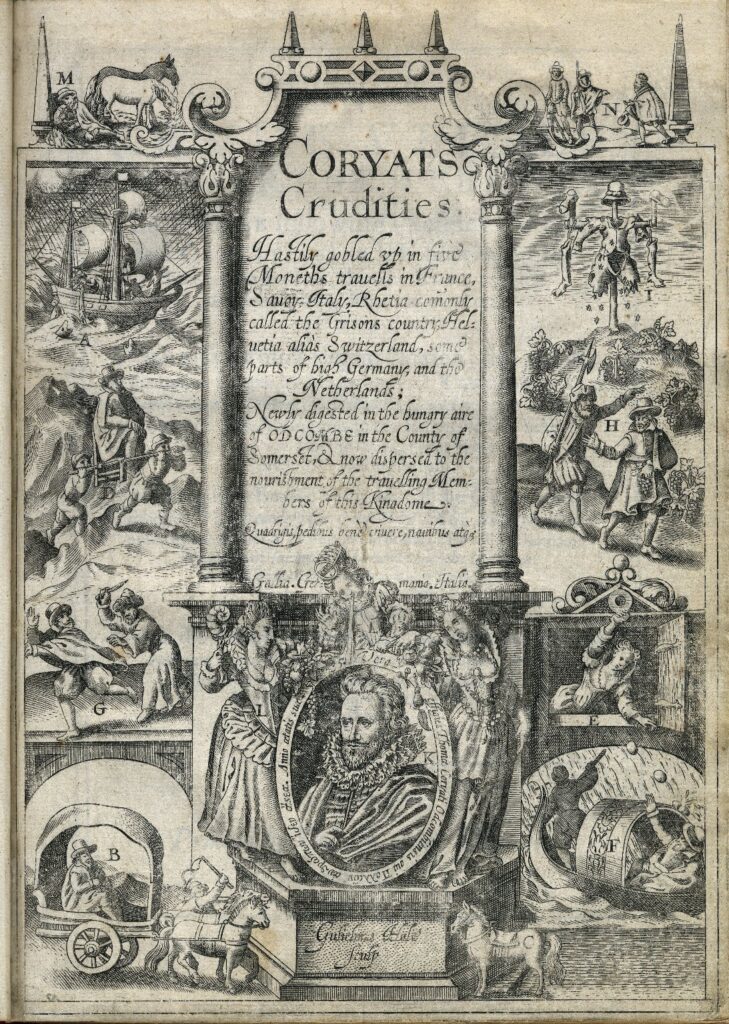 M
N
CORYATS
Crudities.
Hastily gobled vp in five
Moneths trauells in France,
Sauoy, Italy, Rhetia comonly
called the Grisons country, Hel=
uetia alias Switzerland, some
parts of high Germany, and the
Netherlands;
Newly digested in the hungry aire
of ODCOMBE in the County of
Somerset, & now dispersed to the
nourishment of the trauelling Mem=
bers of this Kingdome.
Quadrigis, pedibus bene viuere, nauibus atq
Gallia. Ger mania. Italia.
A
I
H
G
L
K
E
B
F
Gulielmus Hole
sculp